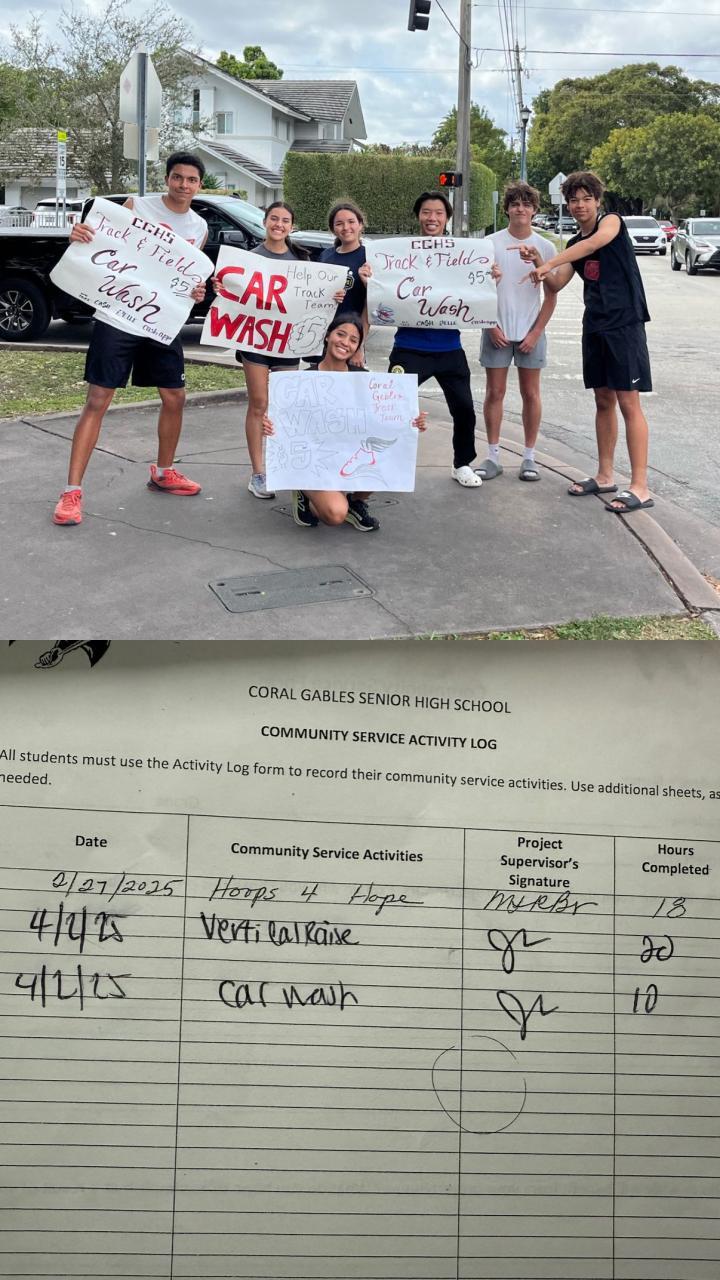 CGHS
Track & Field
Car
Wash
$5
CASH
CAR
WASH
Help Our
Track
Team
$5
CGHS
Track & Field
$5
Car
Wash
CASH
CAR
WASH
$5
Coral
Gables
Track
Team
15
CORAL GABLES SENIOR HIGH SCHOOL
COMMUNITY SERVICE ACTIVITY LOG
All students must use the Activity Log form to record their community service activities. Use additional sheets, as
needed.
Date
Community Service Activities
Project
Supervisor's
Signature
Hours
Completed
2/27/2025 Hoops 4 Hope 18
4/2/25 Vertical Raise 20
4/2/25 Car wash 10